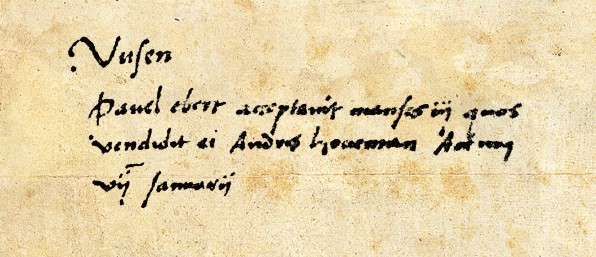 Vusen
Pavel ebert acceptavit mansos iij quos
vendidit ei Andres Actum
vij Januarij